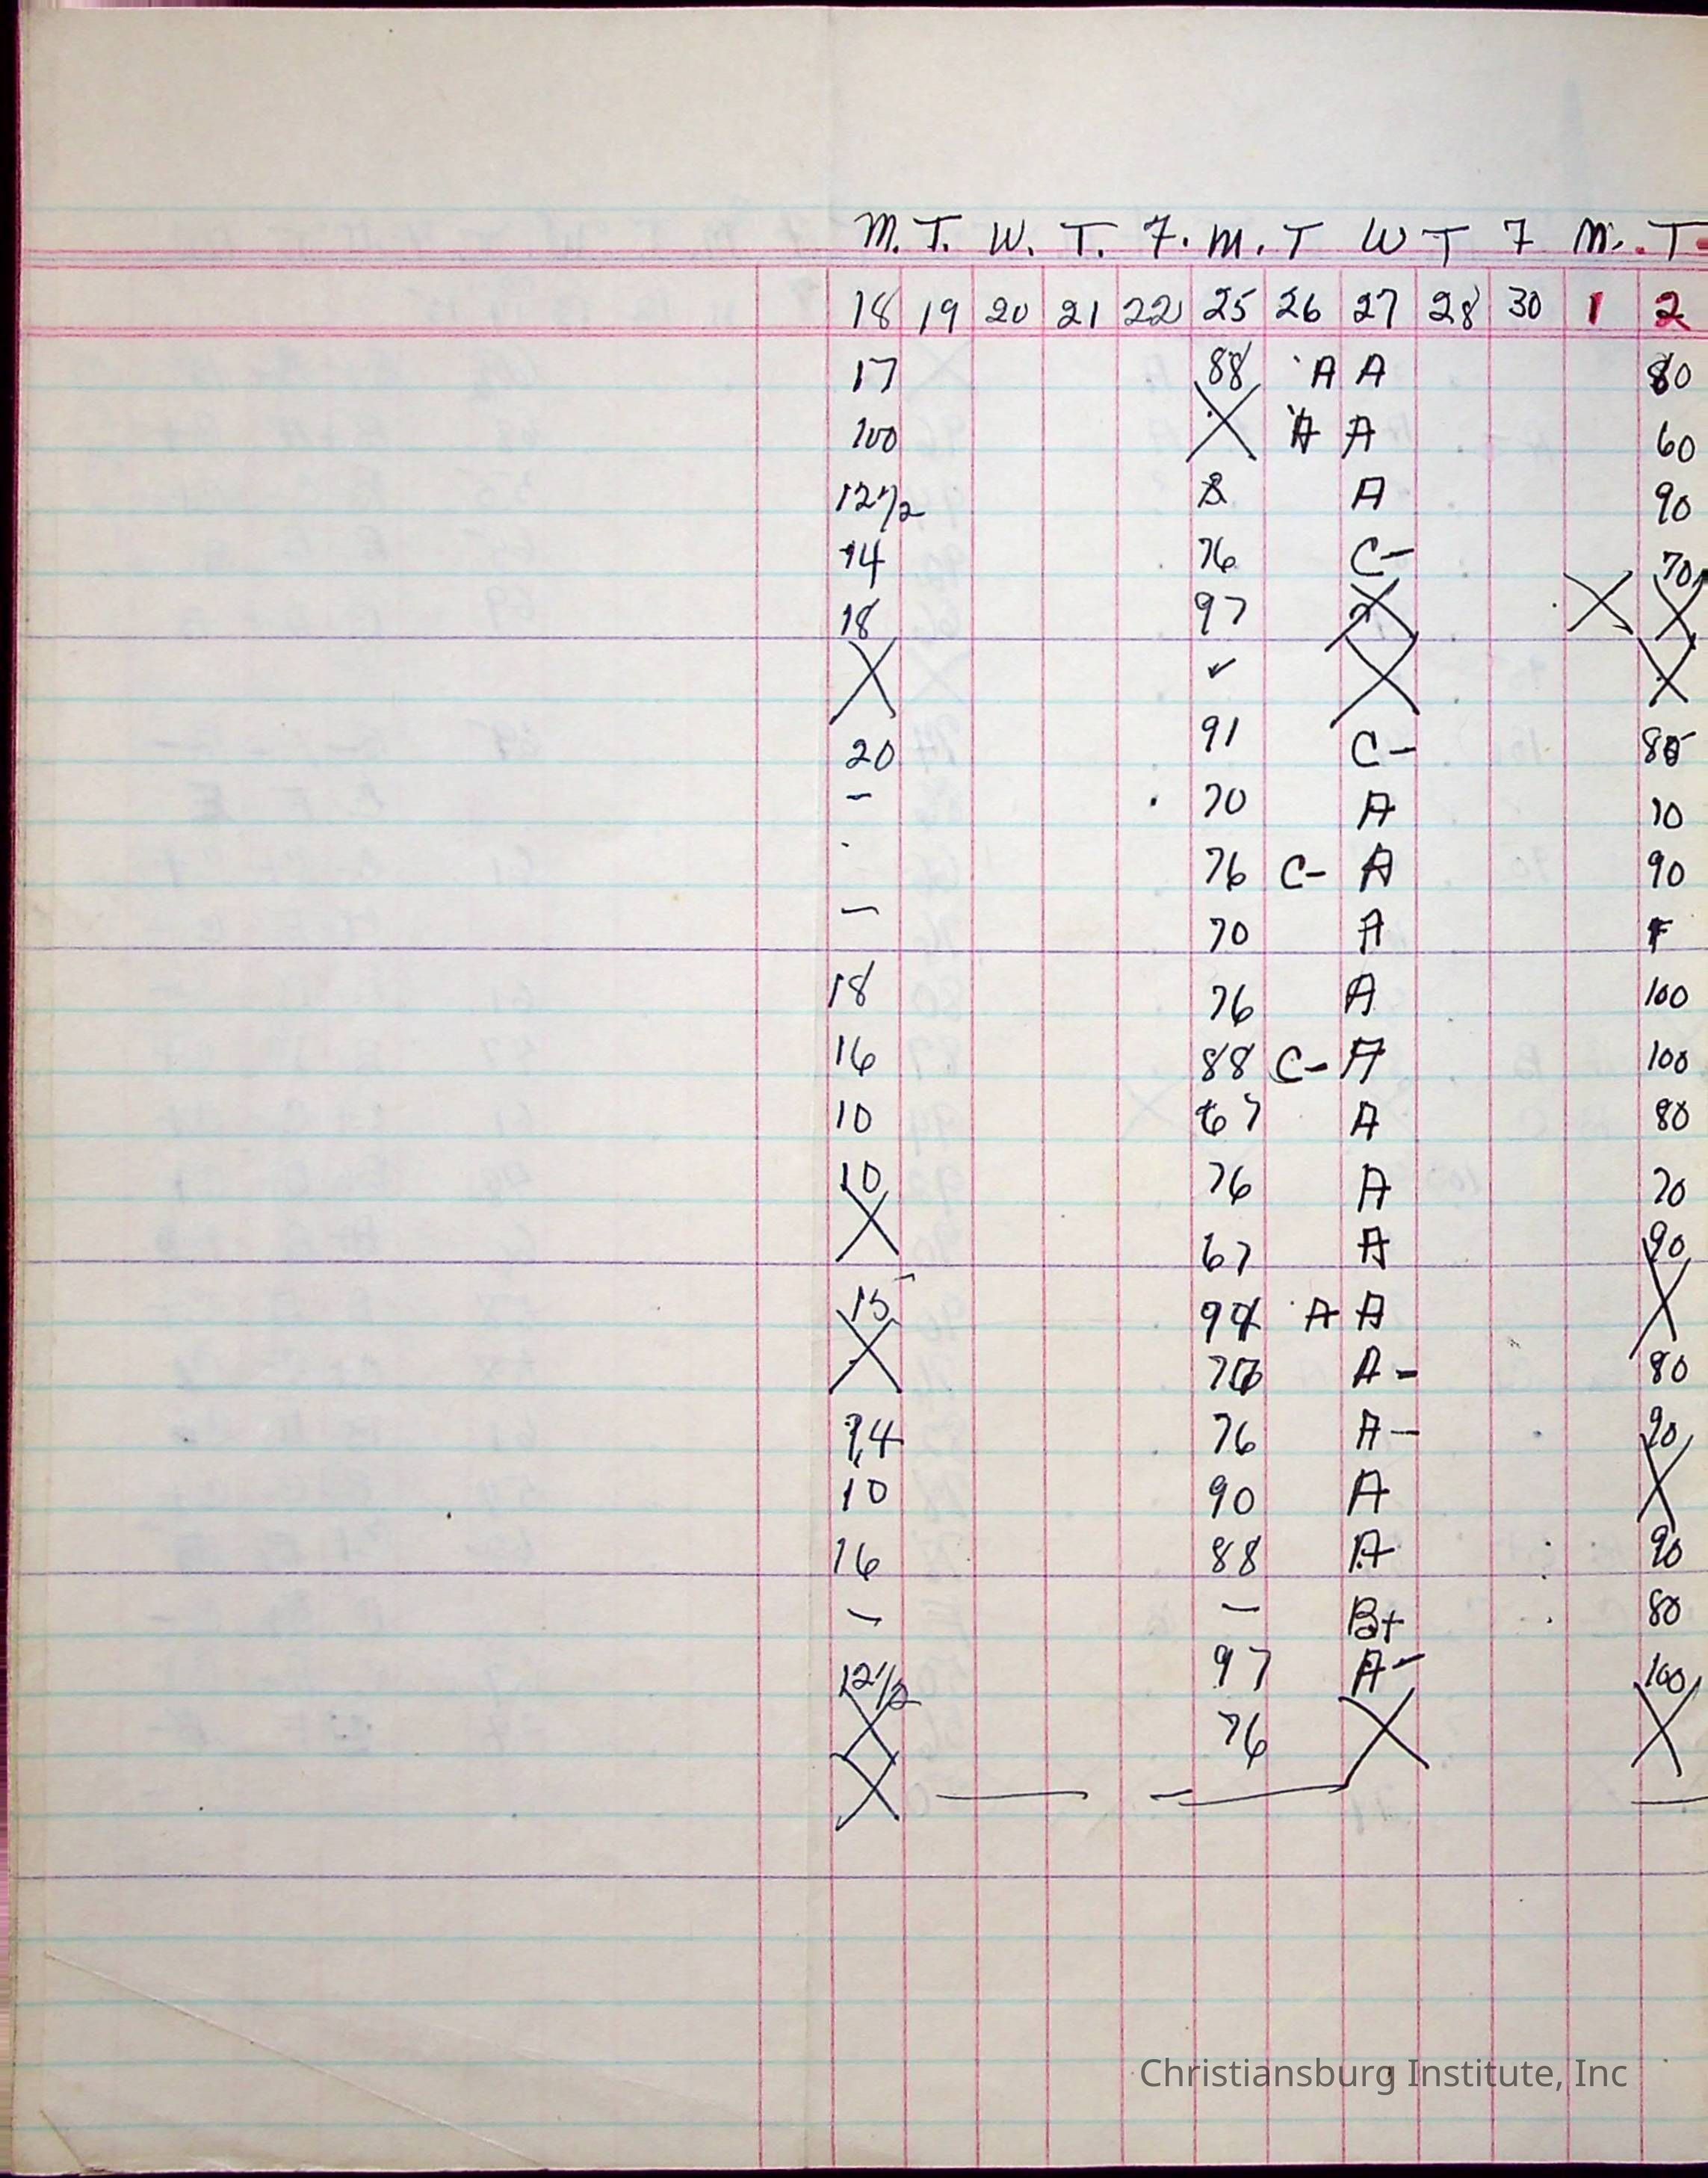 M. T. W. T. F. M. T W T F M. T
18 19 20 21 22 25 26 27 28 30 1 2
17 88 A A 80
100 X A A 60
12 1/2 A 90
14 76 C- 70
18 97 X X X
X ✓ X X
20 91 C- 80
- 70 A 70
76 C- A 90
- 70 A F
18 76 A 100
16 88 C- A 100
10 67 A 80
10 76 A 70
X 67 A 90
15 94 A A X
X 76 A- 80
14 76 A- 90
10 90 A X
16 88 A 90
- - B+ 80
12 1/2 97 A- 100
X 76 X X
X
Christiansburg Institute, Inc